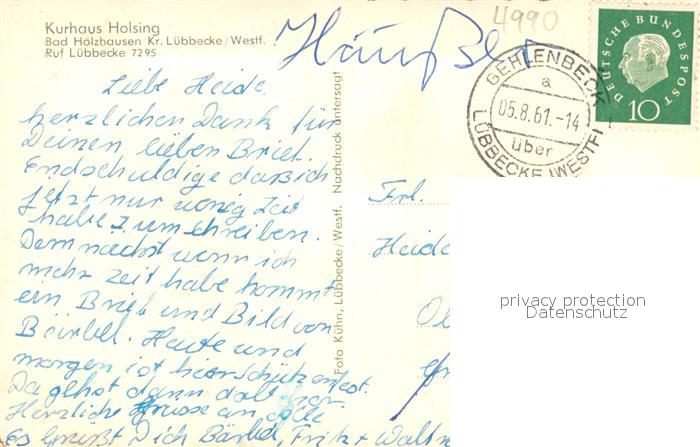 Kurhaus Holsing
Bad Holzhausen Kr. Lübbecke/Westf.
Ruf Lübbecke 7295
4990
Häußler
DEUTSCHE BUNDESPOST
10
GEHLENBECK
a
05.8.61.-14
über
LÜBBECKE (WESTF)
Liebe Heide
herzlichen Dank für
Deinen lieben Brief.
Endschuldige daß ich
jetzt nur wenig Zeit
habe zum schreiben.
Demnächst wenn ich
mehr Zeit habe kommt
ein Brief und Bild von
Bärbel. Heute und
morgen ist hier Schützenfest.
Da gehst dann doll her
Herzliche Grüsse an alle
Es Grüßt Dich Bärbel, Fritz + Walt
Foto Kühn, Lübbecke/Westf. Nachdruck untersagt
Frl.
Heide
privacy protection
Datenschutz